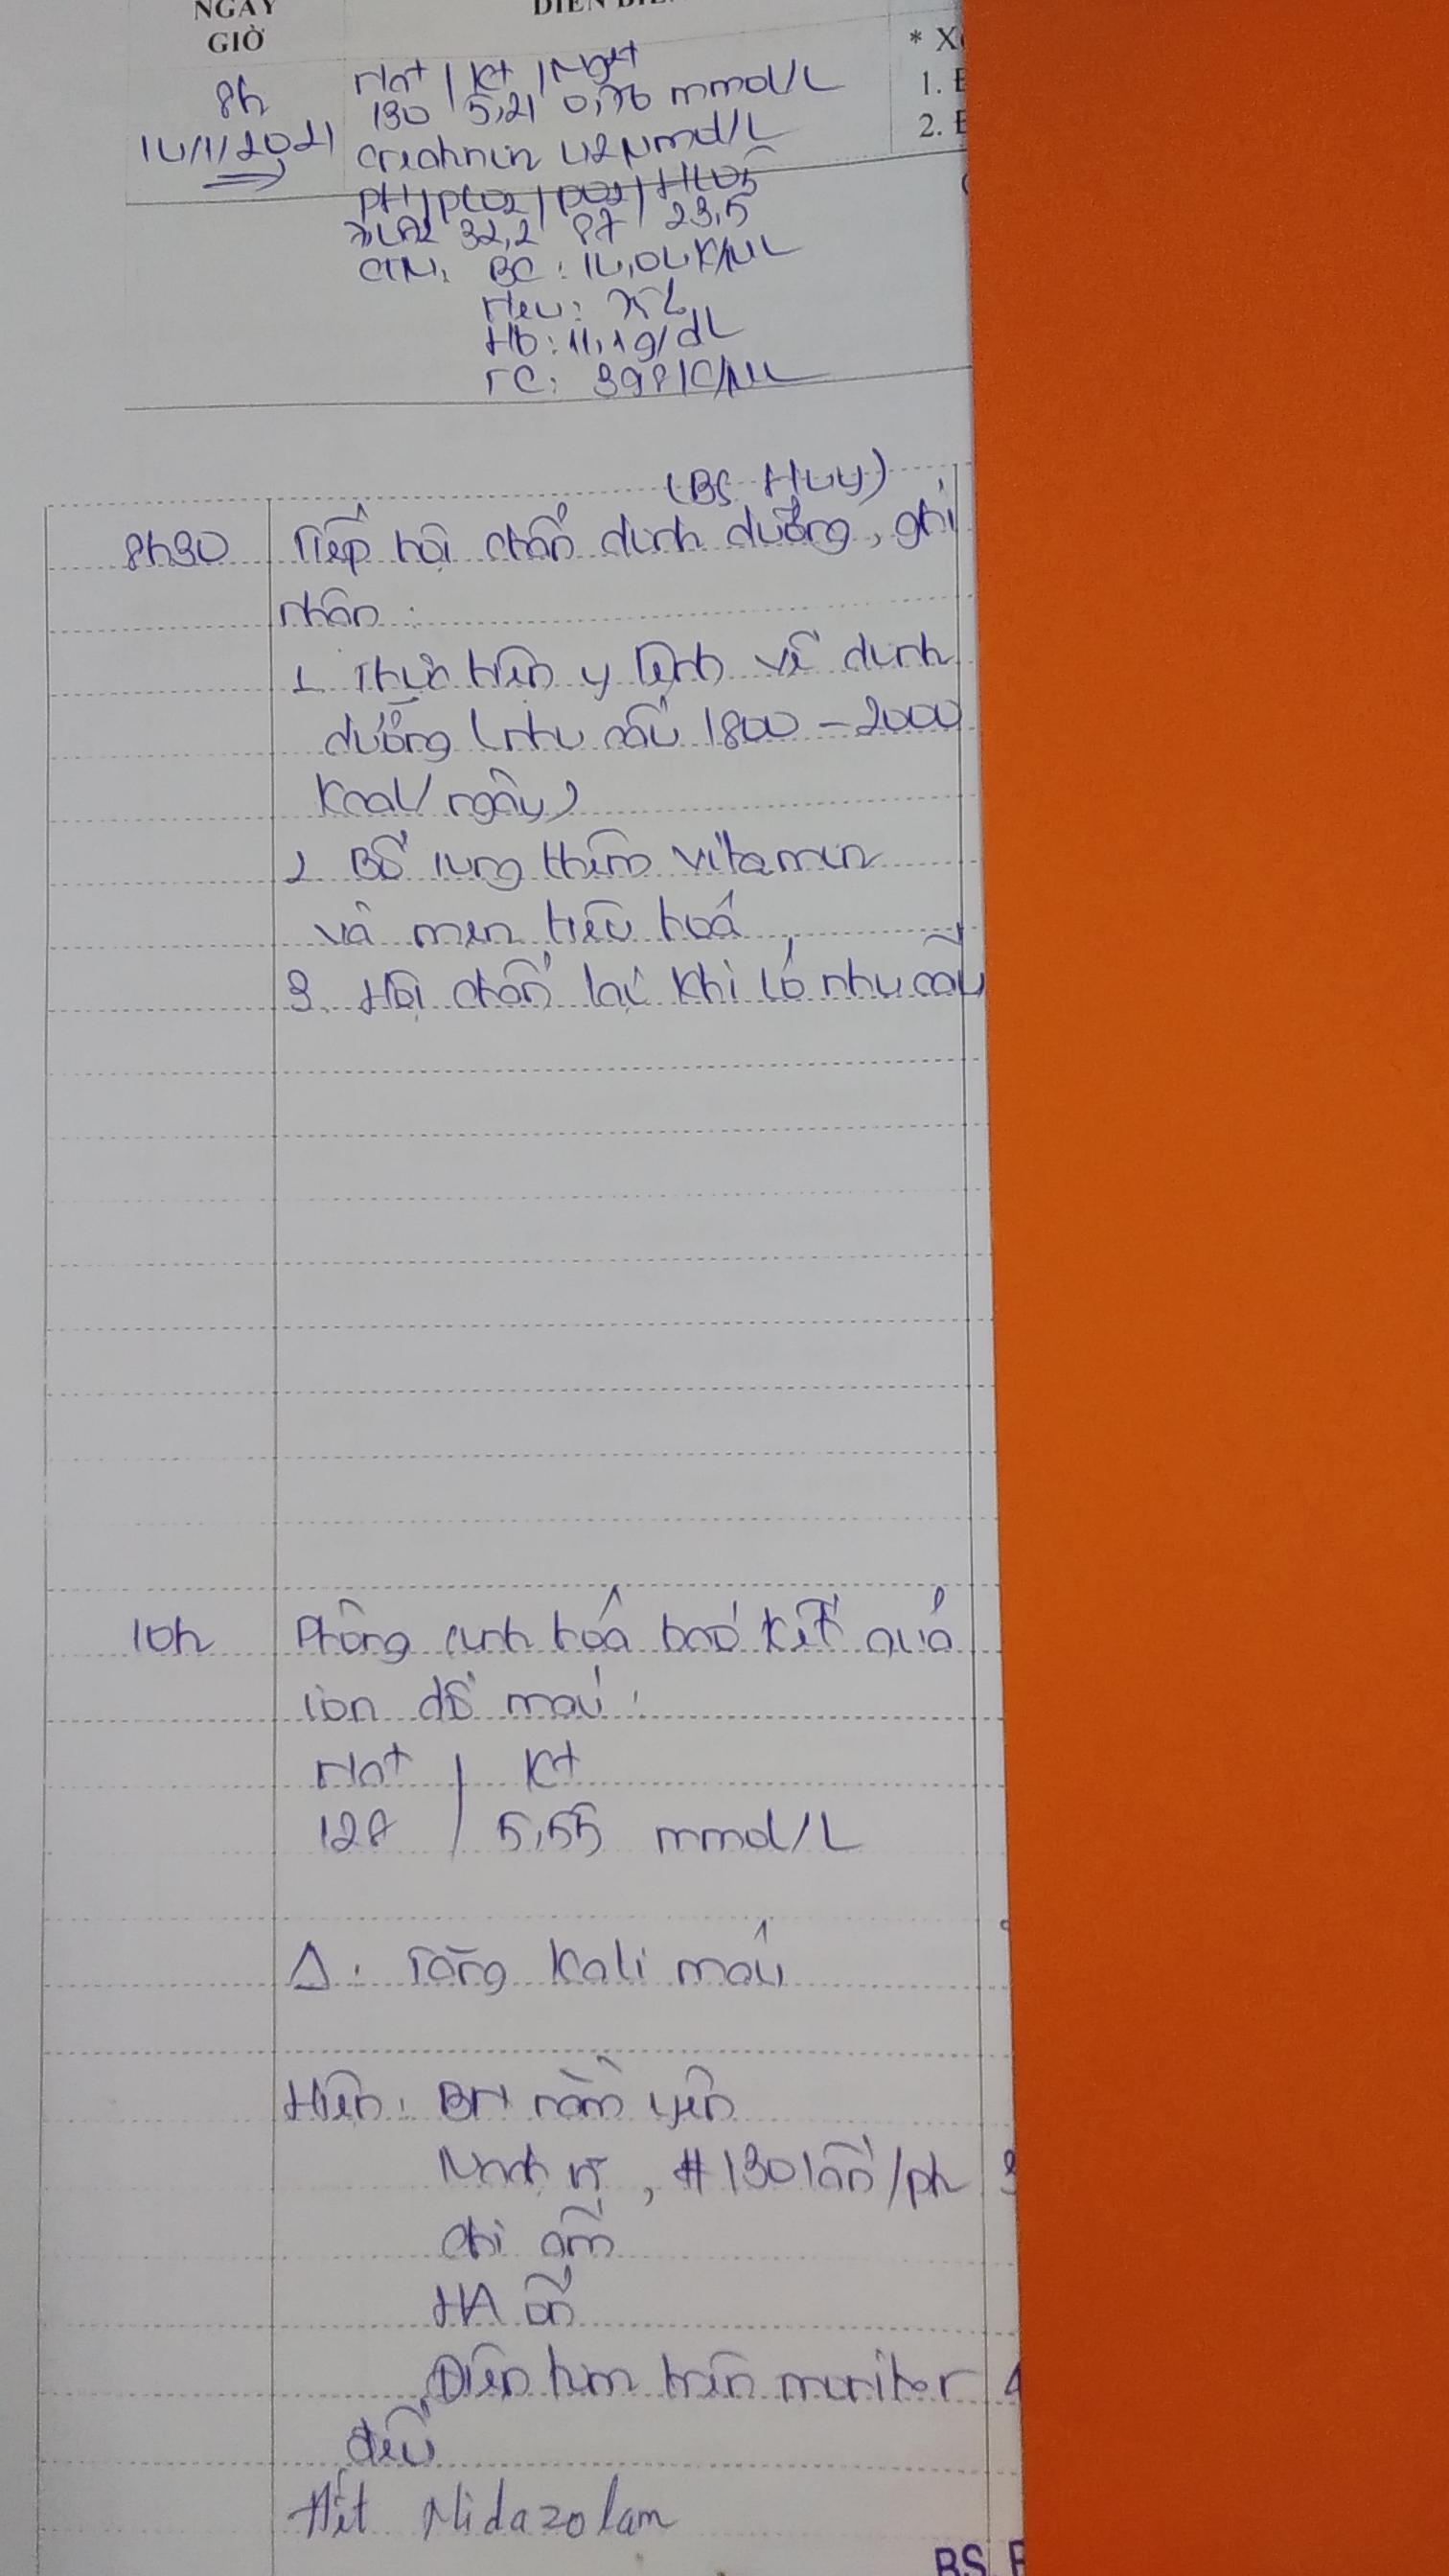 NGÀY
GIỜ
DIỄN BIẾ
* X
1. E
2. E
8h
14/1/2021
Na+ | K+ | Mg2+
130 5,21 0,76 mmol/L
Creatinin 42 µmol/L
pH | pCO2 | pO2 | HCO3
32,2 87 23,5
CTM: BC: 14,04 K/µL
Neu:
Hb: 11,1 g/dL
TC: 398 K/µL
(BS Huy)
8h30 Tiếp hội chẩn dinh dưỡng, ghi
nhận:
1. Thực hiện y lệnh về dinh
dưỡng (nhu cầu 1800 - 2000
Kcal/ngày)
2. Bổ sung thêm vitamin
và men tiêu hoá
3. Hội chẩn lại khi có nhu cầu
10h Phòng sinh hoá báo kết quả
ion đồ máu:
Na+ | K+
128 | 5,55 mmol/L
Δ: Tăng Kali máu
Hiện: BN nằm yên
Mạch rõ, # 130 lần/ph 3
Chi ấm
HA ổn
Điện tim trên monitor 4
đều
Hết Midazolam
BS.